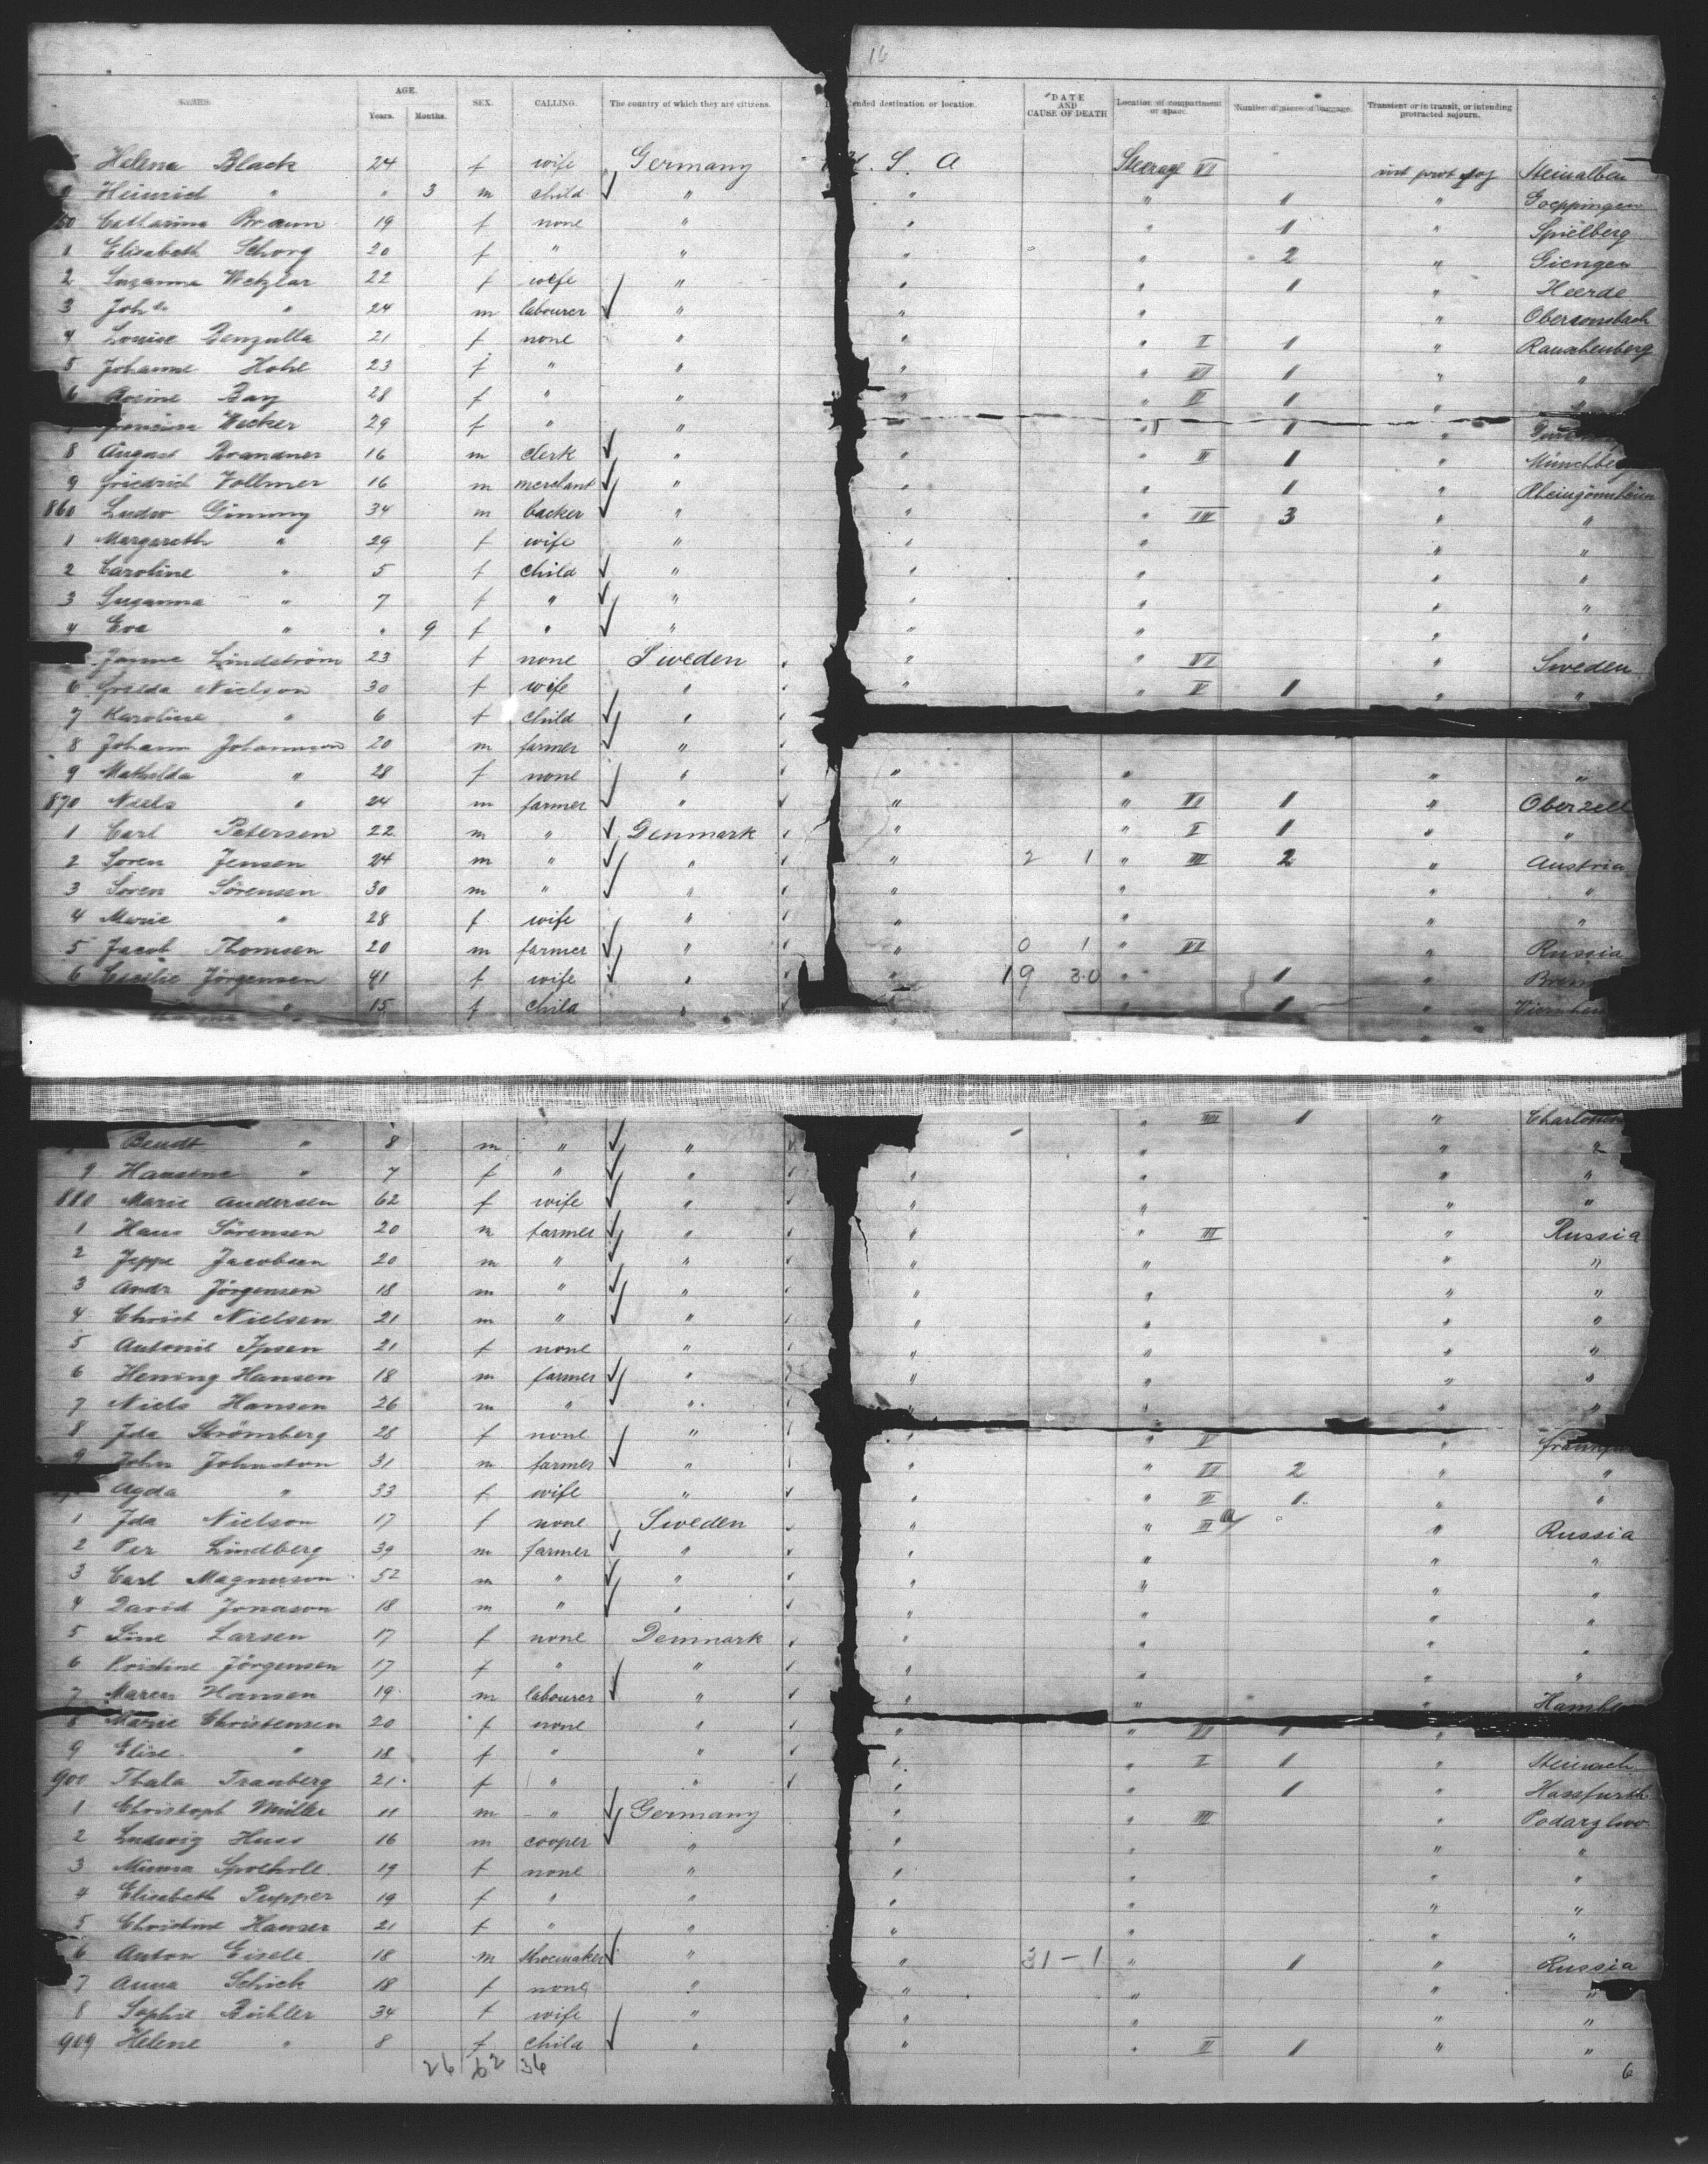 16
NAMES. AGE. Years. Months. SEX. CALLING. The country of which they are citizens. ended destination or location. DATE AND CAUSE OF DEATH Location of compartment or space. Number of pieces of baggage. Transient or in transit, or intending protracted sojourn.
Helena Black 24 f wife Germany U. S. A Steerage VI Steinalben
9 Heinrich " " 3 m child " " " 1 " Goeppingen
50 Catharina Braun 19 f none " " " 1 " Spielberg
1 Elisabeth Schorg 20 f " " " " 2 " Giengen
2 Suzanna Wetzlar 22 f wife " " " 1 " Heerde
3 Joh " 24 m labourer " " " "
4 Louise Benzulla 21 f none " " " V 1 " Rauschenberg
5 Johanne Hohl 23 f " " " " VI 1 " "
6 Rosine Bay 28 f " " " " V 1 " "
Wecker 29 f " " " 1 "
8 August Brandner 16 m clerk " " " V 1 " Münchbe
9 Friedrich Vollmer 16 m merchant " " " 1 " Rheingönnheim
860 Ludw Gimmy 34 m backer " " " VII 3 " "
1 Margareth " 29 f wife " " " " "
2 Caroline " 5 f child " " " " "
3 Susanna " 7 f " " " " " "
4 Eva " " 9 f " " " " " "
Lindström 23 f none Sweden " " VI " Sweden
6 Nielson 30 f wife " " " V 1 " "
7 Karoline " 6 f child "
8 Johann Johannson 20 m farmer "
9 Mathilda " 28 f none " " " " "
870 Niels " 24 m farmer " " " VI 1 " Oberzell
1 Carl Petersen 22 m " Denmark " " V 1 " "
2 Soren Jensen 24 m " " " 2 1 " III 2 " Austria
3 Soren Sörensen 30 m " " " " " "
4 Marie " 28 f wife " " " " "
5 Jacob Thomsen 20 m farmer " " 0 1 " VI " Russia
6 Jörgensen 41 f wife " " 19 30 " 1 "
" 15 f child " 1 "
" 1 "
Bendt " 8 m " " " "
9 Hansine " 7 f " " " " " "
880 Marie Andersen 62 f wife " " " " "
1 Hans Sörensen 20 m farmer " " " III " Russia
2 Jeppe Jacobsen 20 m " " " " " "
3 Andr Jörgensen 18 m " " " " " "
4 Christ Nielsen 21 m " " " " " "
5 Antonie Ipsen 21 f none " " " " "
6 Hening Hansen 18 m farmer " " " " "
7 Niels Hansen 26 m " " " " " "
8 Ida Strömberg 28 f none " " " V "
9 John Johnston 31 m farmer " " " VI 2 " "
Agda " 33 f wife " " " V 1 " "
1 Ida Nielson 17 f none Sweden " " " Russia
2 Per Lindberg 39 m farmer " " " " "
3 Carl Magnuson 52 m " " " " " "
4 David Jonason 18 m " " " " " "
5 Sine Larsen 17 f none Denmark " " " "
6 Kristine Jörgensen 17 f " " " " " "
7 Maren Hansen 19 m labourer " " " " Hamb
8 Marie Christensen 20 f none " " " VI 1 "
9 Elise " 18 f " " " " V 1 " Steinach
900 Thala Tranberg 21 f " " " " 1 " Hassfurth
1 Christoph Müller 11 m " Germany " " III "
2 Ludwig Huss 16 m cooper " " " " "
3 Minna 19 f none " " " " "
4 Elisabeth Pupper 19 f " " " " " "
5 Christine Hauser 21 f " " " " " "
6 Anton Eisele 18 m shoemaker " " 31 - 1 " 1 " Russia
7 Anna Schick 18 f none " " " " "
8 Sophie Bühler 34 f wife " " " " "
909 Helene " 8 f child " " " V 1 " "
26 62 36
6